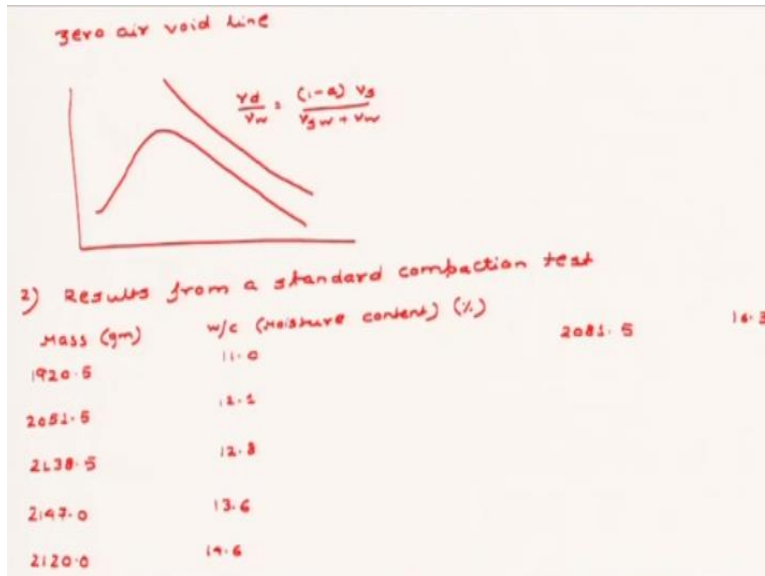 zero air void line
γd / γw = (1-a) γs / γsw + γw
2) Results from a standard compaction test
Mass (gm) w/c (Moisture content) (%)
1920.5 11.0
2051.5 12.1
2138.5 12.8
2147.0 13.6
2120.0 14.6
2081.5 16.3